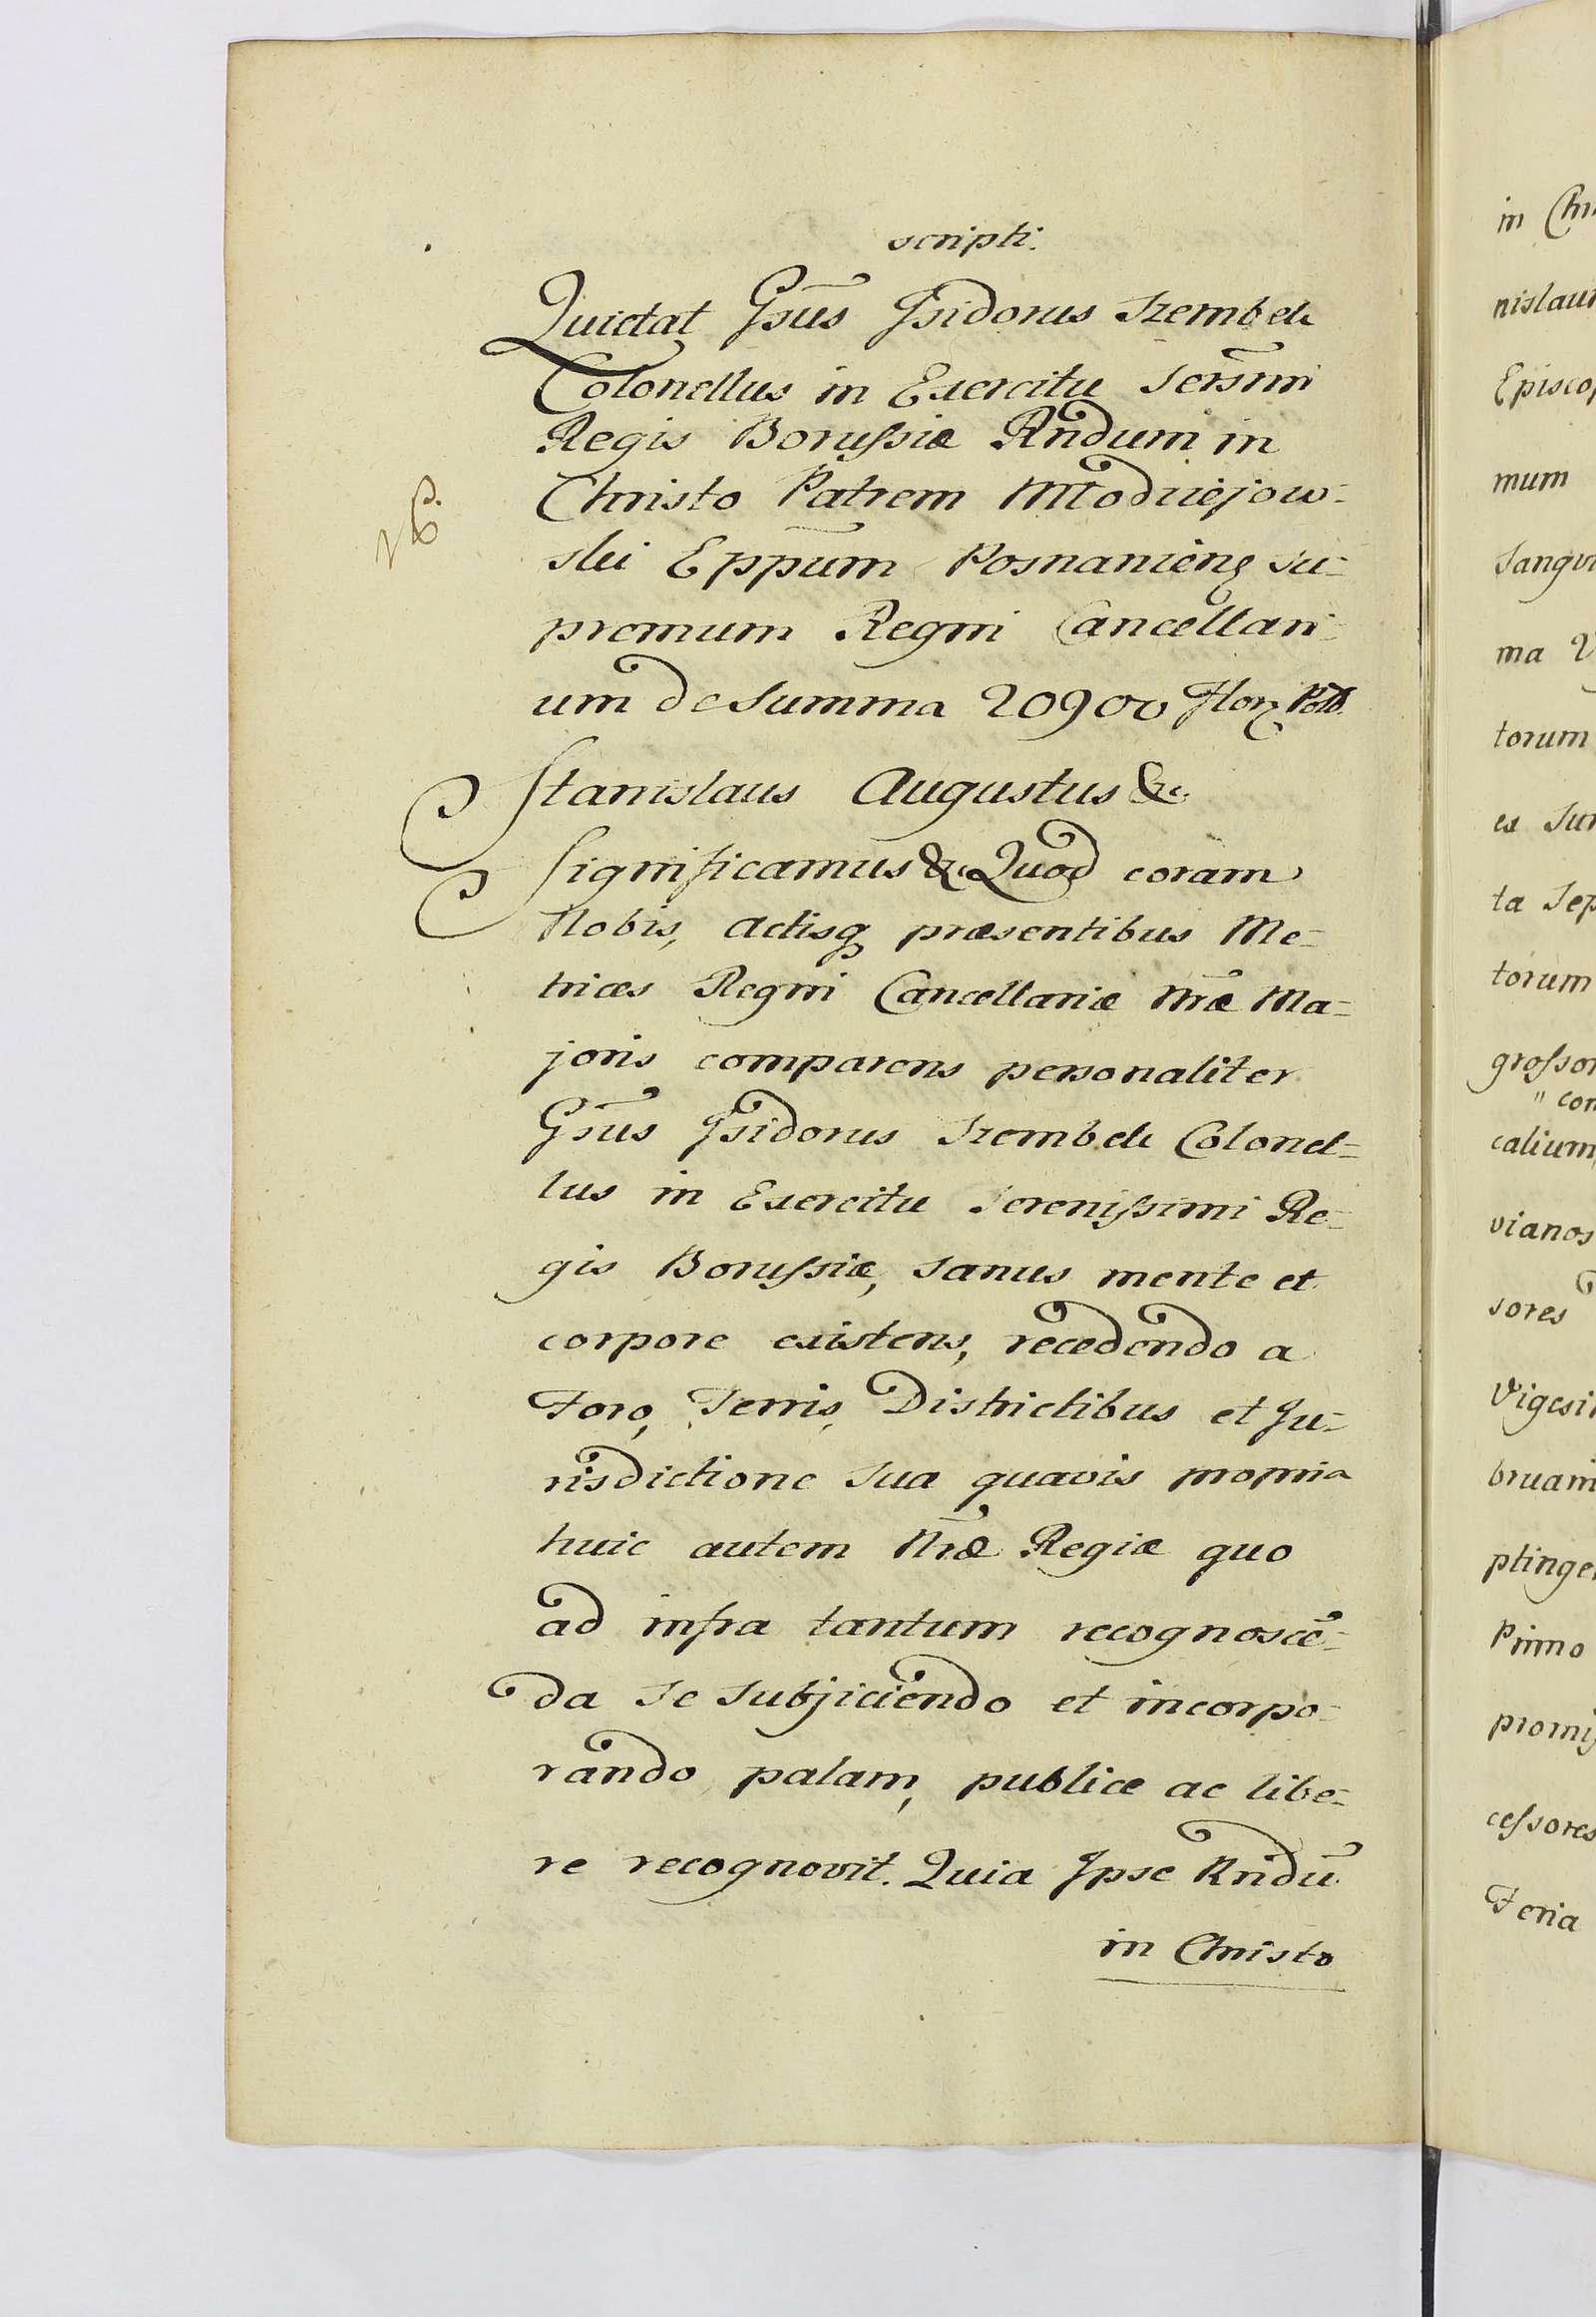 scripti.
Quietat Gsus Isidorus Szembek
Colonellus in Exercitu Serſmi
Regis Boruſsiæ Rndum in
Christo Patrem Młodziejow-
ski Eppum Posnanien̄ Su-
premum Regni Cancellari-
um de Summa 20900 Flor. Poll.
Stanislaus Augustus &c
Significamus &c Quod coram
Nobis, Actisq præsentibus Me-
trices Regni Cancellariæ Nræ Ma-
joris comparens personaliter
Gsus Isidorus Szembek Colonel-
lus in Exercitu Sereniſsimi Re-
gis Boruſsiæ, Sanus mente et
corpore existens, recedendo a
Foro, Terris, Districtibus et Ju-
risdictione Sua quavis propria
huic autem Nræ Regiæ quo
ad infra tantum recognoscē-
da Se Subjiciendo et incorpo-
rando palam, publice ac libe-
re recognovit. Quia Ipse Rndū
in Christo
in
nislau
Episcop
mum
Sangvi
ma
torum
ex Sum
ta Sep
torum
groſsor
" con
calium
vianos
sores
Vigesi
bruarii
ptinge
Primo
promiſ
ceſsores
Feria